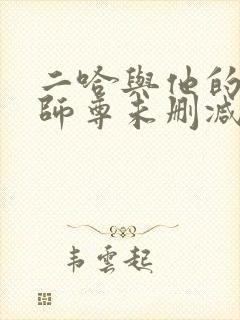 二哈與他的
師尊未刪减
韦雲起